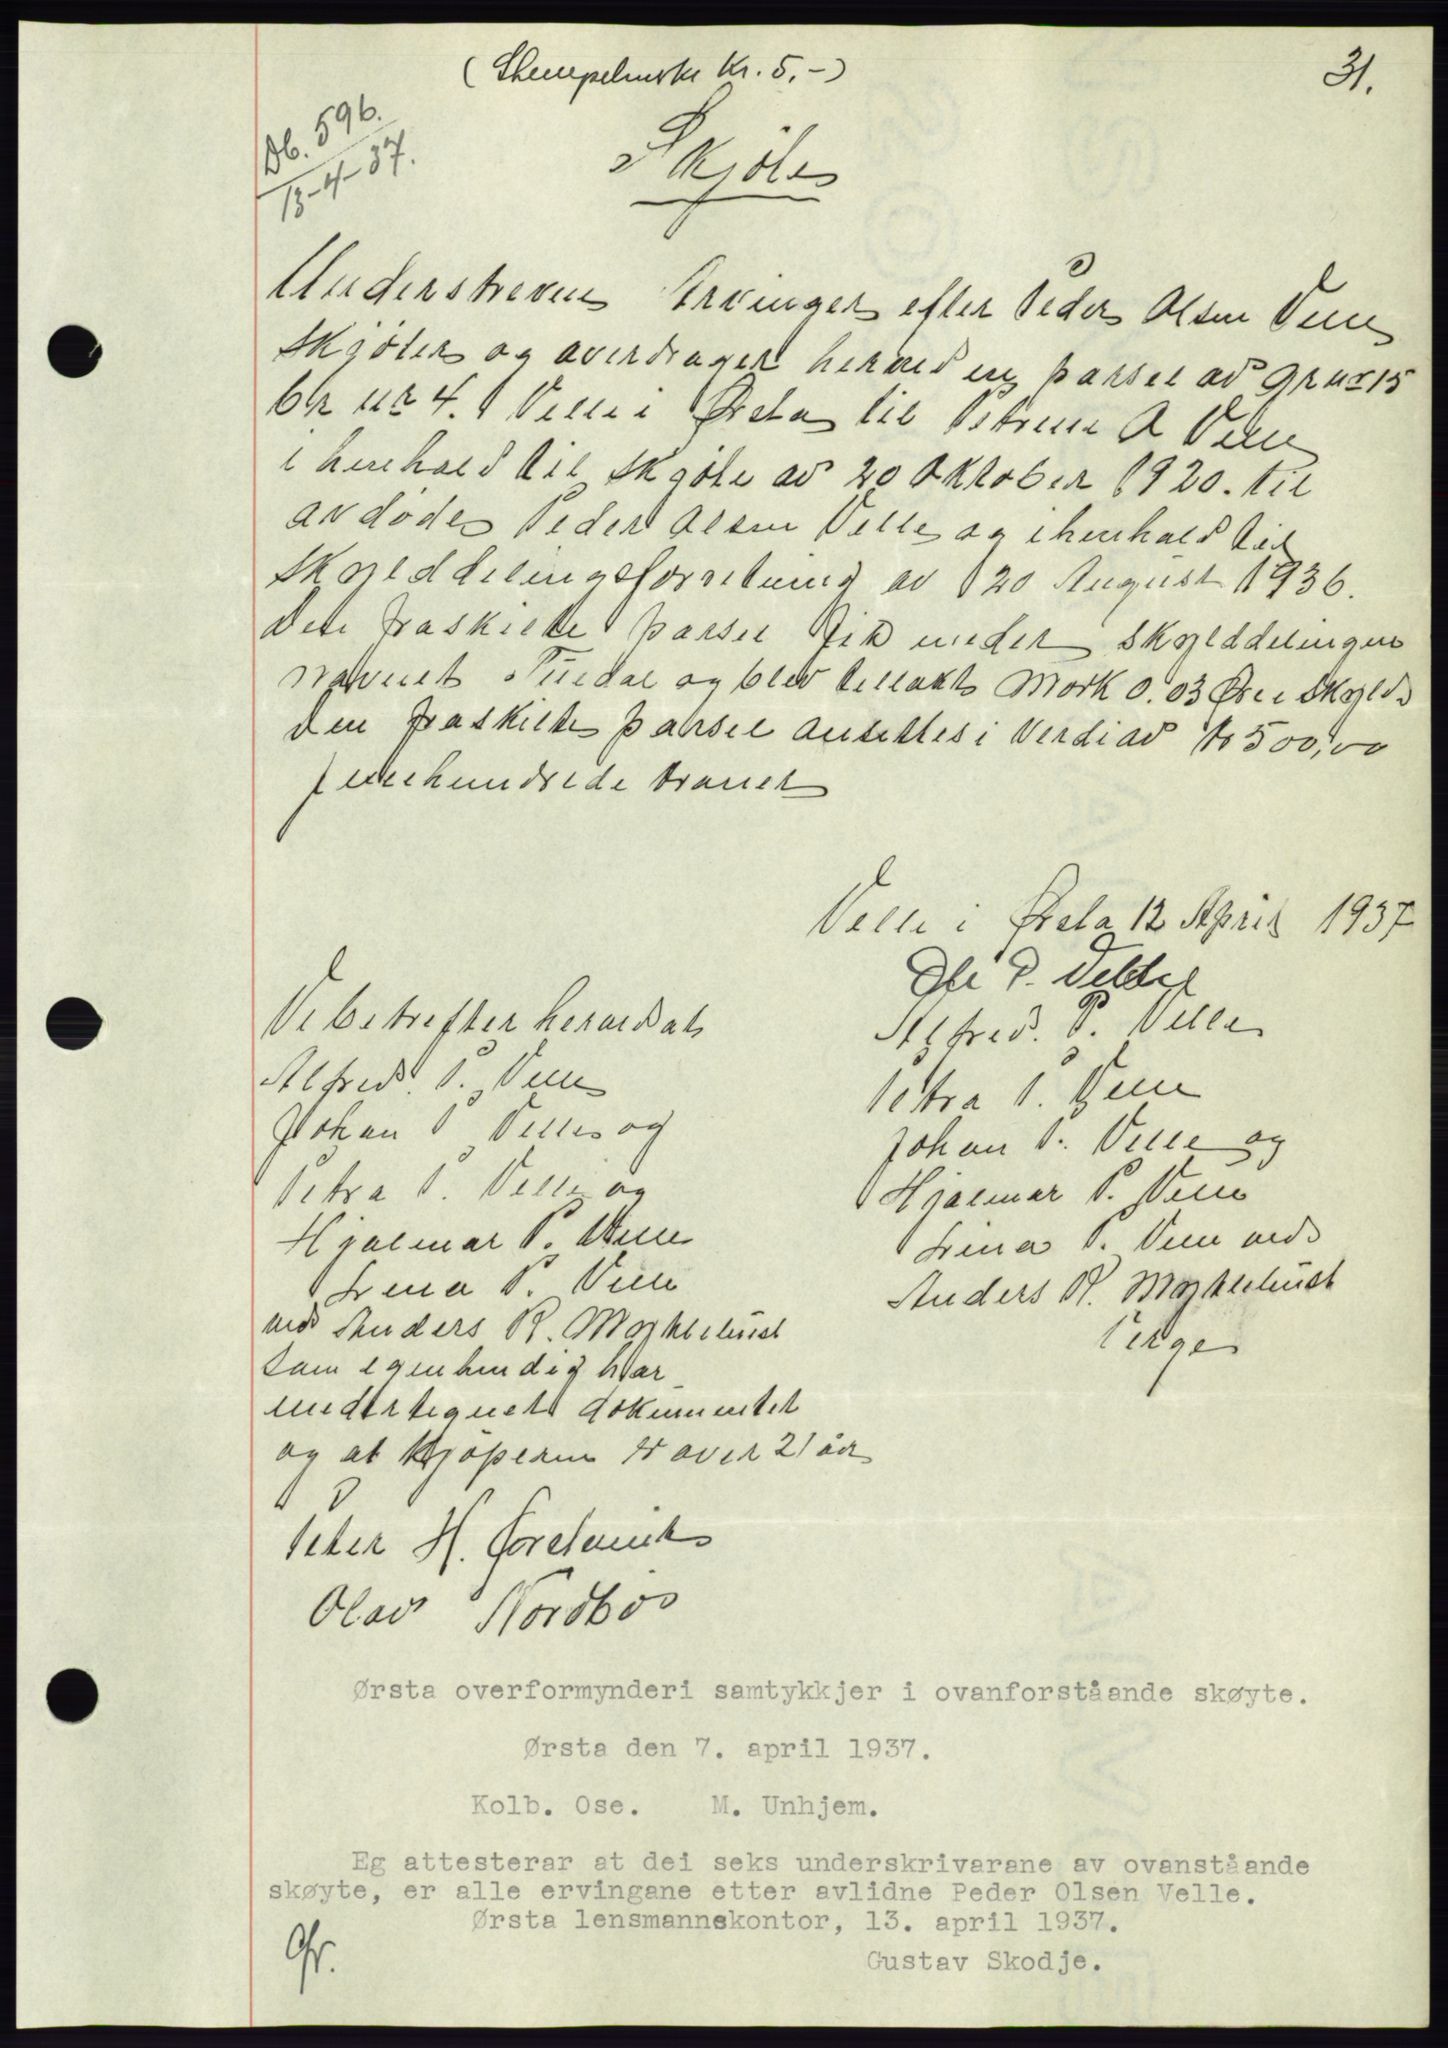 (Stempelmerke Kr. 5,-)
31.
Db. 596.
13-4-37.
Skjöte
Understrevne Arvinger efter Peder Olsen Velle
skjöter og overdrager herved en parsel av grnr 15
br nr 4. Velle i Ørsta til Petrine A Velle
i henhold til skjöte av 20 Oktober 1920. til
avdöde Peder Olsen Velle og i henhold til
skylddelingsforretning av 20 August 1936.
Den fraskilte parsel fik under skylddelingen
navnet og blev tillakt Mark 0.03 Øre i skyld
den fraskilte parsel ansettes i Verdi av Kr 500,00
femhundrede kroner
Velle i Ørsta 12 April 1937
Ole P. Velle
Alfred. P. Velle
Petra P. Velle
Johan P. Velle og
Hjalmar P. Velle
Lina P. Velle ved
Anders R. Myklebust
Verge
Vi betrefter herved at
Alfred. P. Velle
Johan P Velle og
Petra P. Velle og
Hjalmar P. Velle
Lina P. Velle
ved Anders R. Myklebust
som egenhendig har
undertegnet dokumentet
og at kjöperen er over 21 år
Peter H.
Olav Nordbö
Ørsta overformynderi samtykkjer i ovanforståande skøyte.
Ørsta den 7. april 1937.
Kolb. Ose. M. Unhjem.
Eg attesterar at dei seks underskrivarane av ovanståande
skøyte, er alle ervingane etter avlidne Peder Olsen Velle.
Ørsta lensmannskontor, 13. april 1937.
Gustav Skodje.